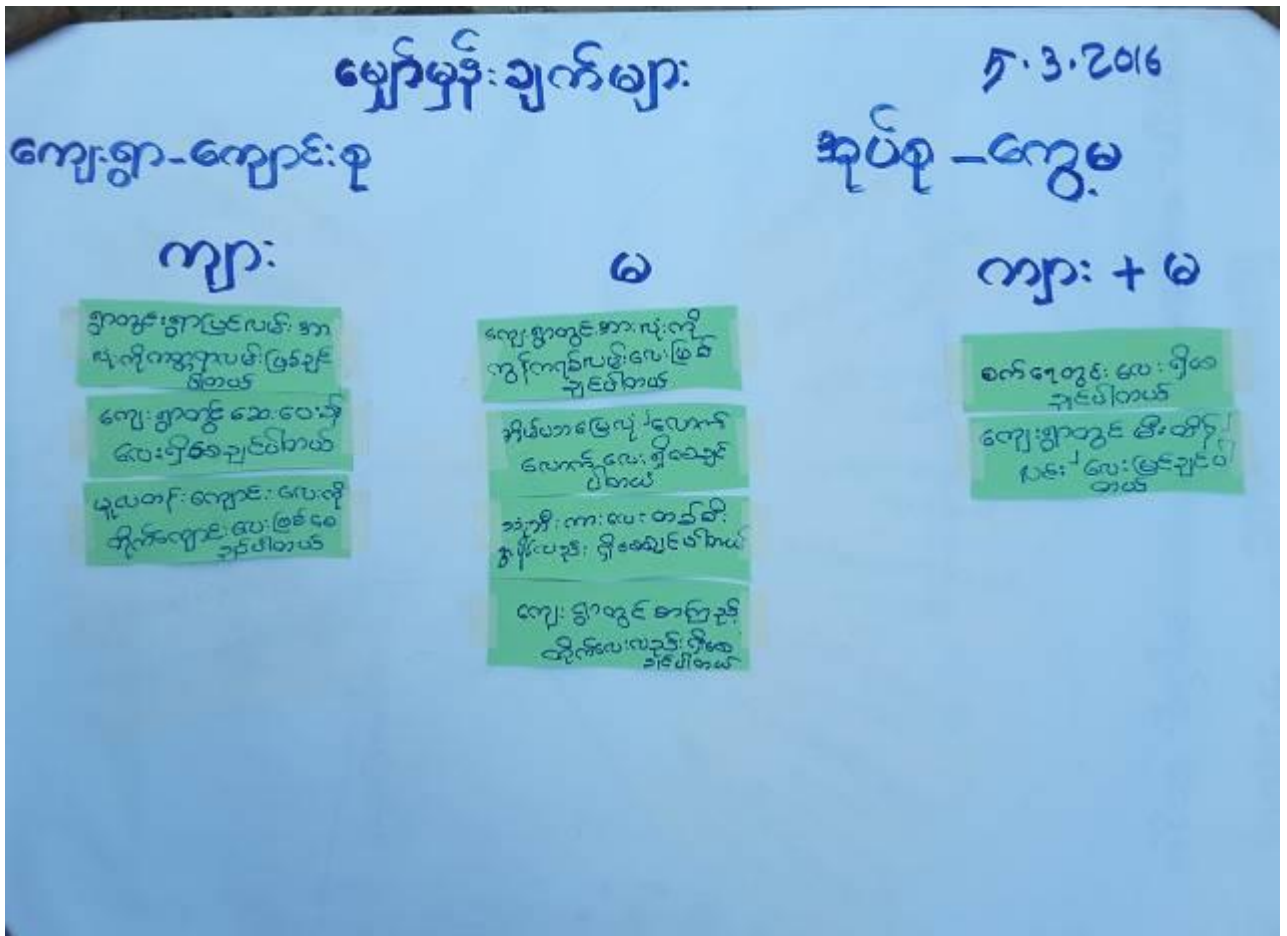 မျှော်မှန်းချက်များ
5.3.2016
ကျေးရွာ-ကျောင်းစု
အုပ်စု-ကွေ့မ
ကျား
မ
ကျား + မ
ရွာတွင်းရွာပြင်လမ်း အား
လုံးကိုကတ္တရာလမ်းဖြစ်ချင်
ပါတယ်
ကျေးရွာတွင် ဆေးပေးခန်း
လေးရှိစေချင်ပါတယ်
မူလတန်းကျောင်းလေးကို
တိုက်ကျောင်းလေးဖြစ်စေ
ချင်ပါတယ်
ကျေးရွာတွင်းအားလုံးကို
ကွန်ကရစ်လမ်းလေးဖြစ်
ချင်ပါတယ်
အိမ်သာမြေလုံ လောက်
လောက်လေးရှိစေချင်
ပါတယ်
သုံးဘီးကားလေးတစ်စီး
ရှိစေချင်ပါတယ်
ကျေးရွာတွင် စာကြည့်
တိုက်လေးလည်းရှိစေ
ချင်ပါတယ်
စက်ရေတွင်းလေးရှိစေ
ချင်ပါတယ်
ကျေးရွာတွင် မီးထိန်
လင်း လေးမြင်ချင်ပါ
တယ်